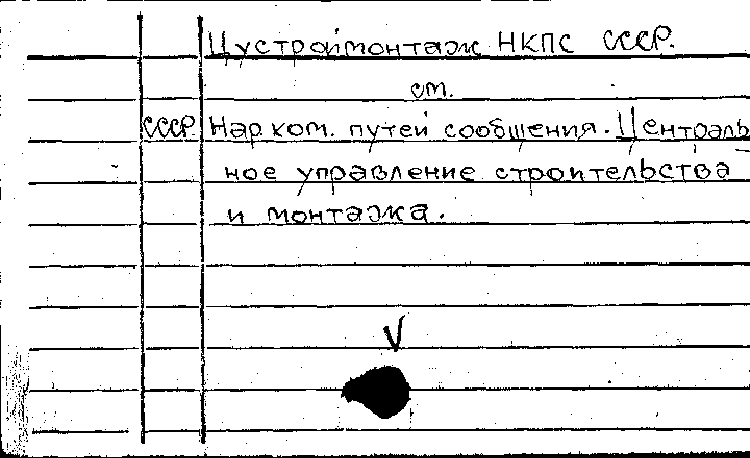 Цустроймонтаж НКПС СССР.
см.
СССР. Нар.ком. путей сообщения. Централь
ное управление строительства
и монтажа.
V